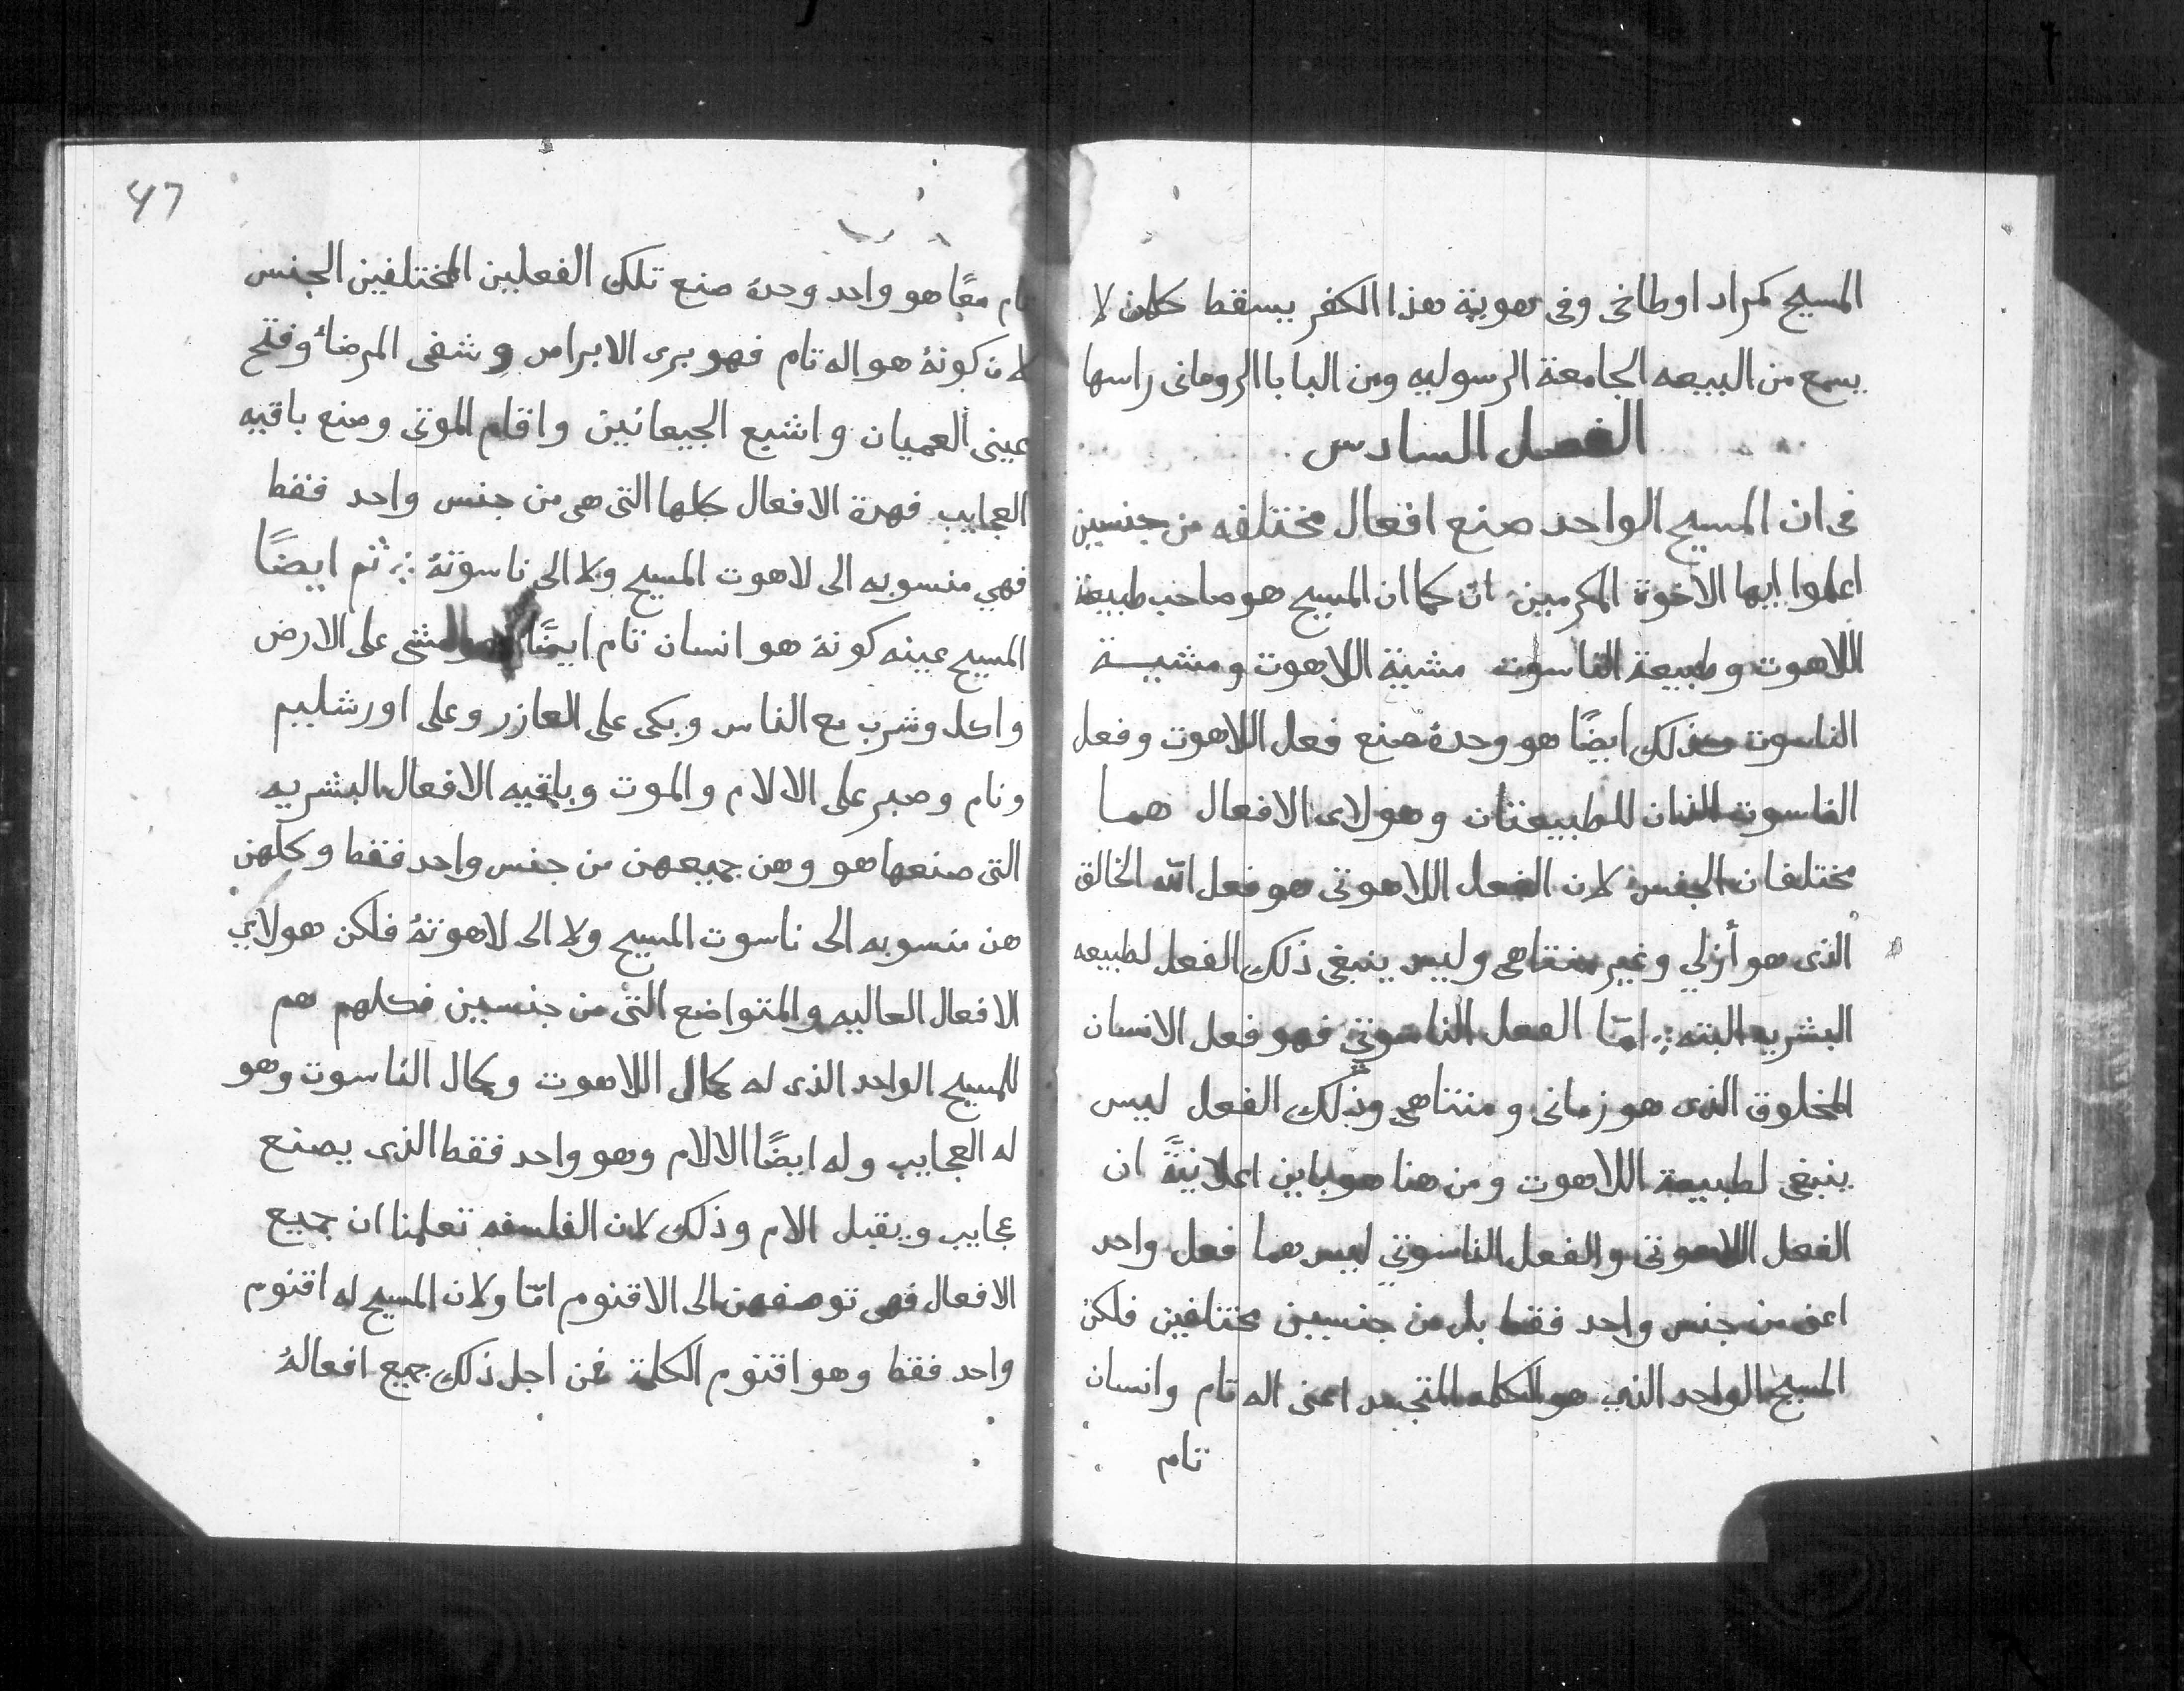 المسيح كمراد اوطاخى وفى هوية هذا الكفر يسقط كلمن لا
يسمع من البيعه الجامعة الرسوليه ومن البابا الرومانى راسها
الفصل السادس
فى ان المسيح الواحد صنع افعال مختلفه من جنسين
اعلموا ايها الاخوة المكرمين ان كما ان المسيح هو صاحب طبيعة
اللاهوت وطبيعة الناسوت مشية اللاهوت ومشية
الناسوت وكذلك ايضًا هو وحدهُ صنع فعل اللاهوت وفعل
الناسوت اللتان للطبيعتان وهولاى الافعال هما
مختلفان الجنس لان الفعل اللاهوتى هو فعل الله الخالق
الذى هو أزلي وغير متناهى وليس ينبغى ذلك الفعل لطبيعه
البشريه البته ؞ امّا الفعل الناسوتي فهو فعل الانسان
المخلوق الذى هو زمانى ومتناهى وذلك الفعل ليس
ينبغى لطبيعة اللاهوت ومن هنا هو باين اعلانيةً ان
الفعل اللاهوتى والفعل الناسوتي ليس هما فعل واحد
اعنى من جنس واحد فقط بل من جنسين مختلفين فلكن
المسيح الواحد الذي هو الكلمه المتجسد اعنى اله تام وانسان
تام
47
تام معًا هو واحد وحدهُ صنع تلك الفعلين المختلفين الجنس
لان كونهُ هو اله تام فهو برى الابراص وشفى المرضاء وفتح
عينى العميان واشبع الجيعانين واقام الموتى وصنع باقيه
العجايب فهدة الافعال كلها التى هى من جنس واحد فقط
فهي منسوبه الى لاهوت المسيح ولا الى ناسوتهُ ؞ ثم ايضًا
المسيح عينه كونهُ هو انسان تام ايضًا هو مشى على الارض
واكل وشرب مع الناس وبكى على العازر وعلى اورشليم
ونام وصبر على الالام والموت وباقيه الافعال البشريه
التى صنعها هو وهن جميعهن من جنس واحد فقط وكلهن
هن منسوبه الى ناسوت المسيح ولا الى لاهوتهُ فلكن هولاي
الافعال العاليه والمتواضع التى من جنسين فكلهم هم
للمسيح الواحد الذى له كمال اللاهوت وكمال الناسوت وهو
له العجايب وله ايضًا الالام وهو واحد فقط الذى يصنع
عجايب ويقبل الام وذلك لان الفلسفه تعلمنا ان جميع
الافعال فهى توصفهن الى الاقنوم امّا ولان المسيح له اقنوم
واحد فقط وهو اقنوم الكلمة فمن اجل ذلك جميع افعالهُ